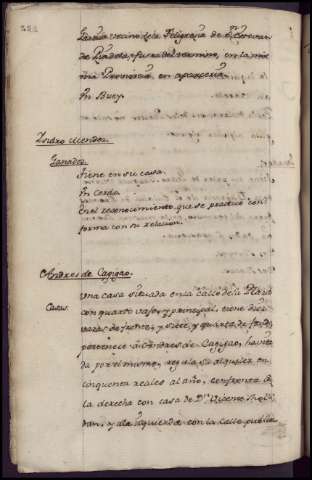 Lema vecino dela Feligresia de Sn. Estevan
de Piadela, fuera del termino, en la mis
ma Provincia, en aparceria.
Un Buey.
Isidro Mendez.
Ganados.
Tiene en su casa.
Un Cerdo.
En el reconocimiento que se practicó con
forma con su relacion.
Andres de Cagigao.
Casas.
Una casa situada en la calle de la
con quarto vajo, y principal, tiene diez
varas de frente, y siete, y quarta de fondo
pertenece á Andres de Cagigao, havita
da por el mismo, regula su alquiler en
cinquenta reales al año, confronta á
la derecha con casa de Dn. Vicente
y ala izquierda con la calle publica